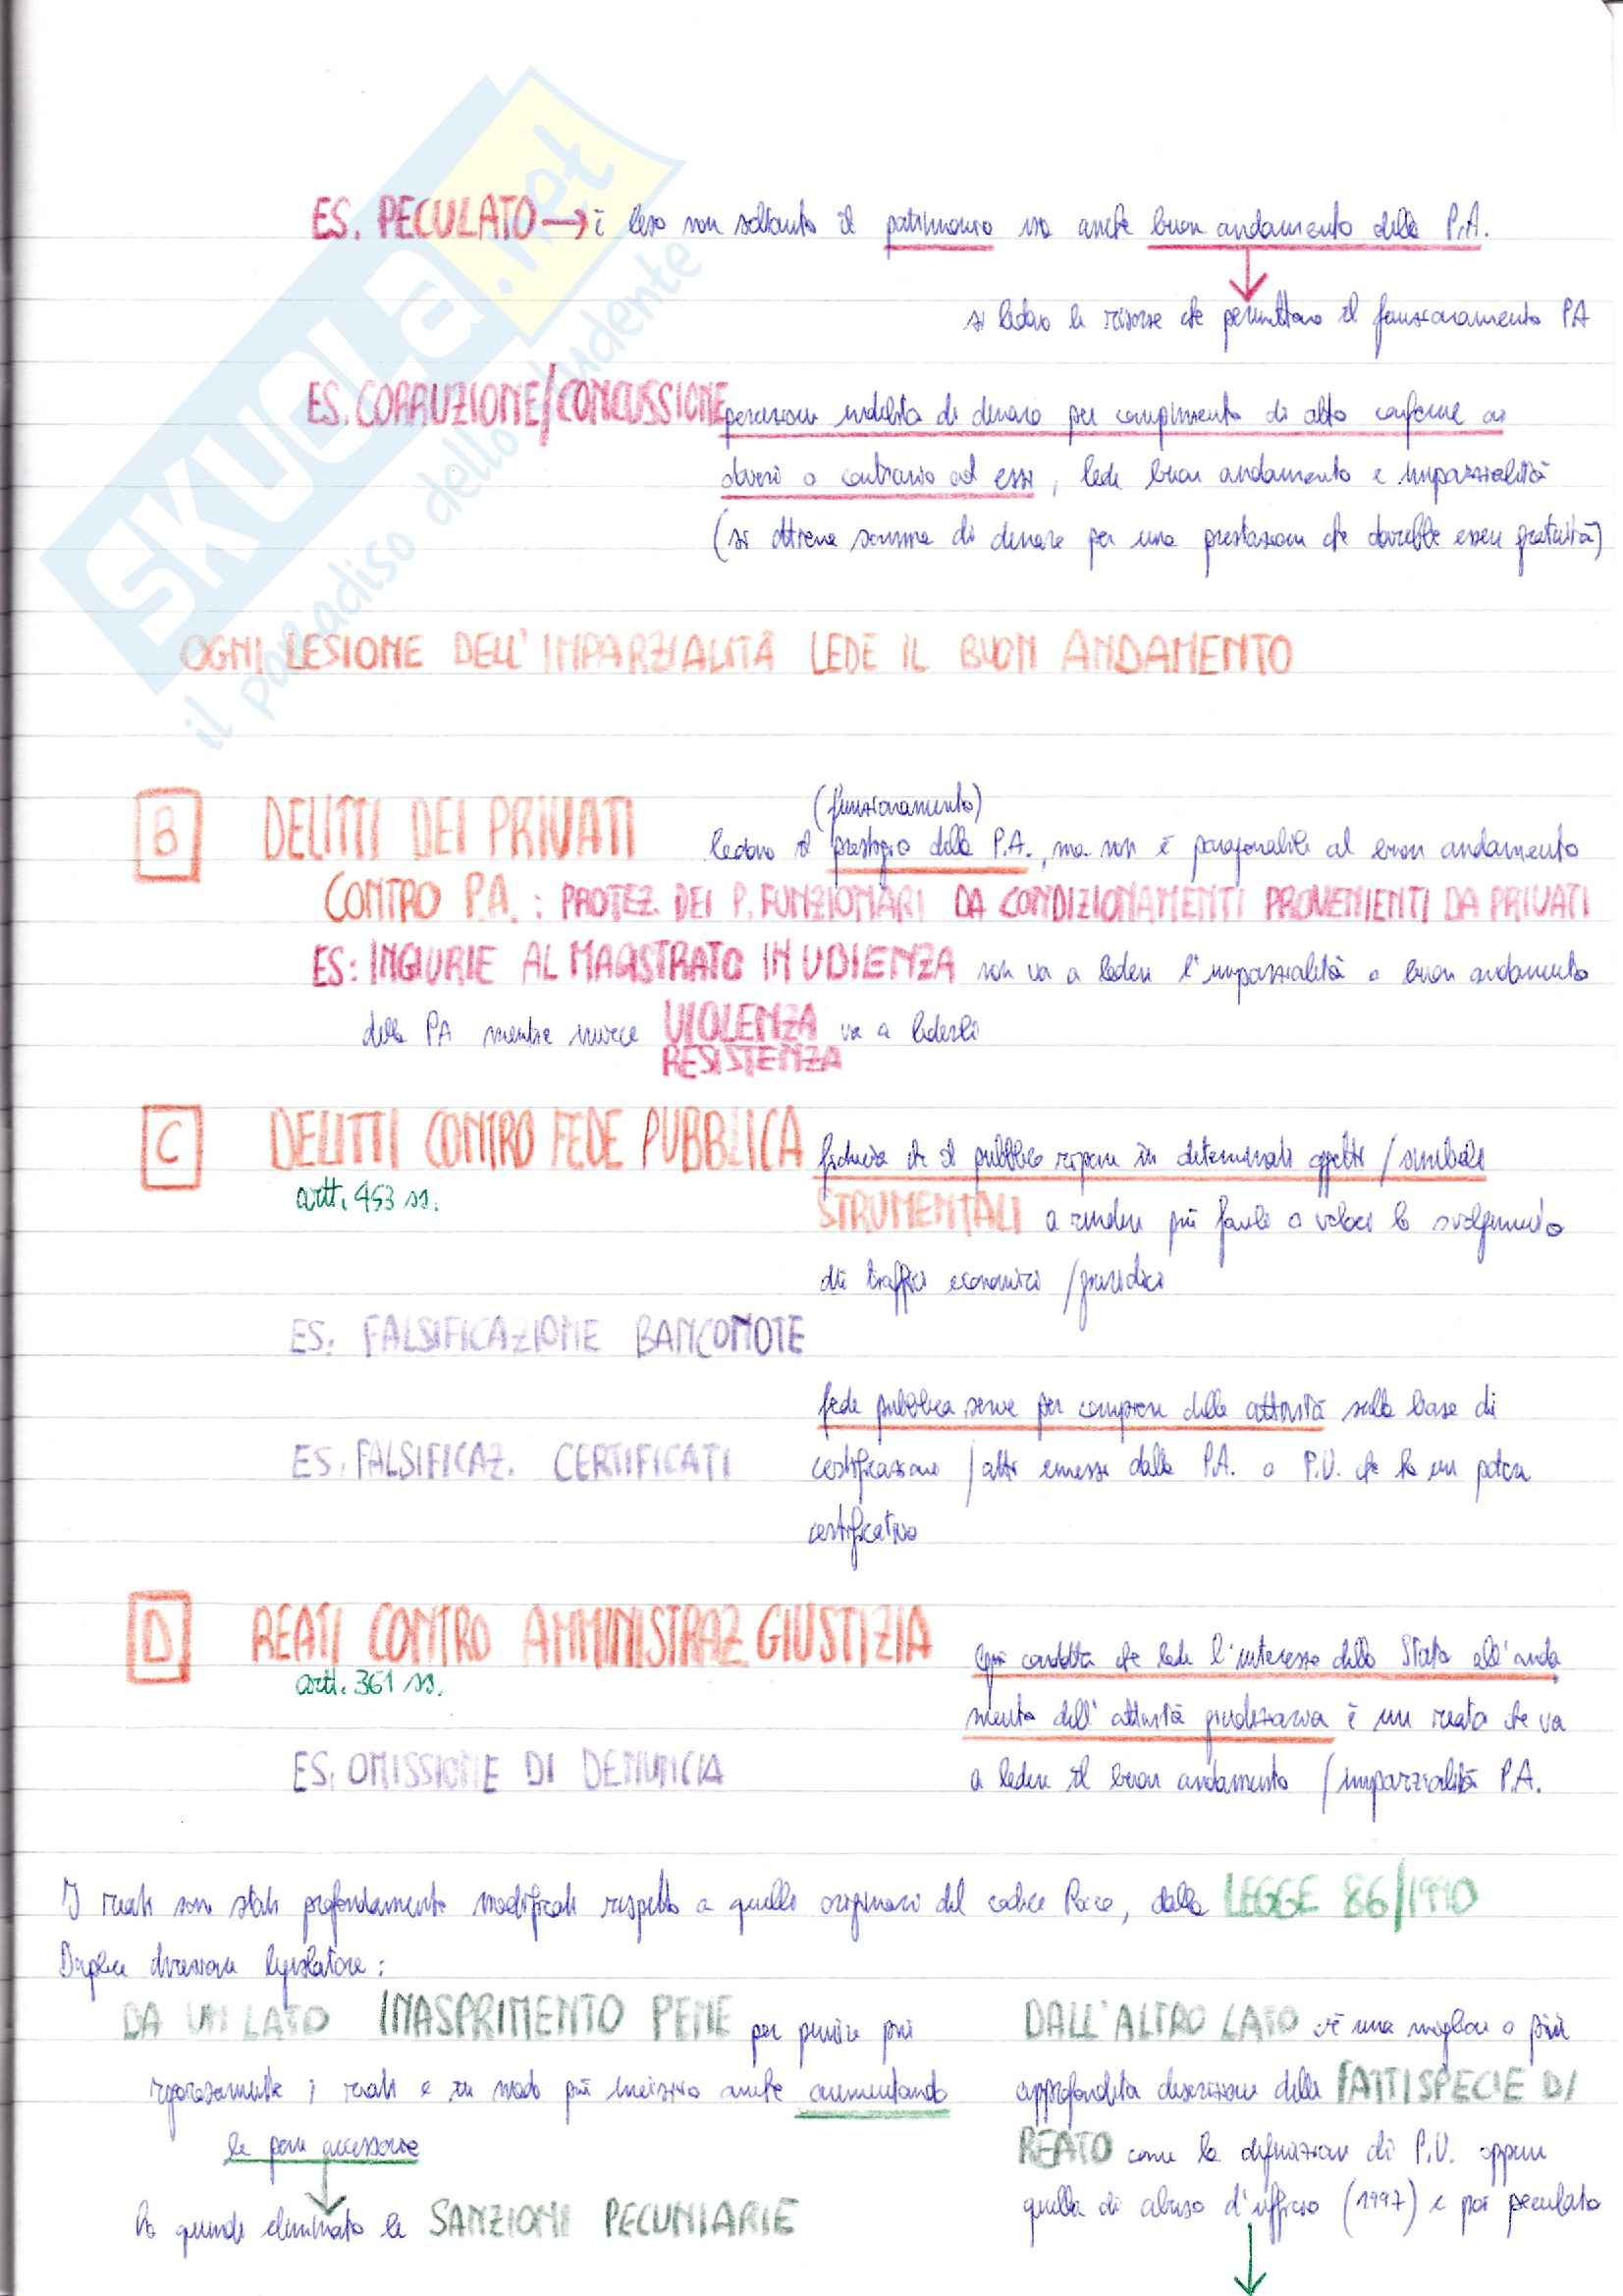 SKUOLA.net
il paradiso dello studente
ES. PECULATO → è leso non soltanto il patrimonio ma anche buon andamento della P.A.
si ledono le risorse che permettono il funzionamento PA
ES. CORRUZIONE/CONCUSSIONE percezione indebita di denaro per compimento di atto conforme ai
doveri o contrario ad essi, lede buon andamento e imparzialità
(si ottiene somma di denaro per una prestazione che dovrebbe essere gratuita)
OGNI LESIONE DELL'IMPARZIALITÀ LEDE IL BUON ANDAMENTO
(funzionamento)
B DELITTI DEI PRIVATI ledono il prestigio della P.A., ma non è paragonabile al buon andamento
CONTRO P.A. : PROTEZ. DEI P. FUNZIONARI DA CONDIZIONAMENTI PROVENIENTI DA PRIVATI
ES: INGIURIE AL MAGISTRATO IN UDIENZA non va a ledere l'imparzialità o buon andamento
della PA mentre invece VIOLENZA va a lederli
RESISTENZA
C DELITTI CONTRO FEDE PUBBLICA fiducia che il pubblico ripone in determinati oggetti / simboli
artt. 453 ss.
STRUMENTALI a rendere più facile o veloce lo svolgimento
dei traffici economici / giuridici
ES: FALSIFICAZIONE BANCONOTE
fede pubblica serve per compiere delle attività sulla base di
ES. FALSIFICAZ. CERTIFICATI certificazione / atti emessi dalla P.A. o P.U. che ha un potere
certificativo
D REATI CONTRO AMMINISTRAZ GIUSTIZIA Ogni condotta che lede l'interesse dello Stato all'anda
artt. 361 ss.
mento dell'attività giudiziaria è un reato che va
ES. OMISSIONE DI DENUNCIA a ledere il buon andamento / imparzialità P.A.
I reati sono stati profondamente modificati rispetto a quelli originari del codice Rocco, dalla LEGGE 86/1990
Duplice direzione legislatore:
DA UN LATO INASPRIMENTO PENE per punire più
rigorosamente i reati e in modo più incisivo anche aumentando
le pene accessorie
Ha quindi eliminato le SANZIONI PECUNIARIE
DALL'ALTRO LATO c'è una migliore o più
approfondita descrizione della FATTISPECIE DI
REATO come la definizione di P.U. oppure
quella di abuso d'ufficio (1997) e poi peculato